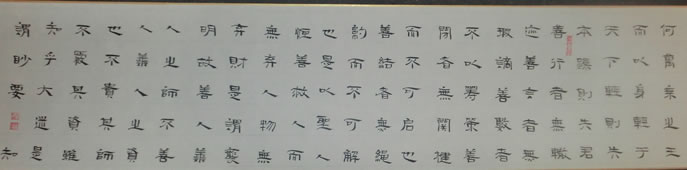 何萬乘之王
而以身輕于
天下輕則失
本躁則失君
善行者無轍
迹善言者無
瑕謫善數者
不以籌策善
閉者無關鍵
而不可启也
善結者無繩
約而不可解
也是以聖人
恒善救人而
無弃人物無
弃財是謂襲
明故善人善
人之師不善
人善人之資
也不貴其師
不愛其資雖
知乎大迷是
謂眇要